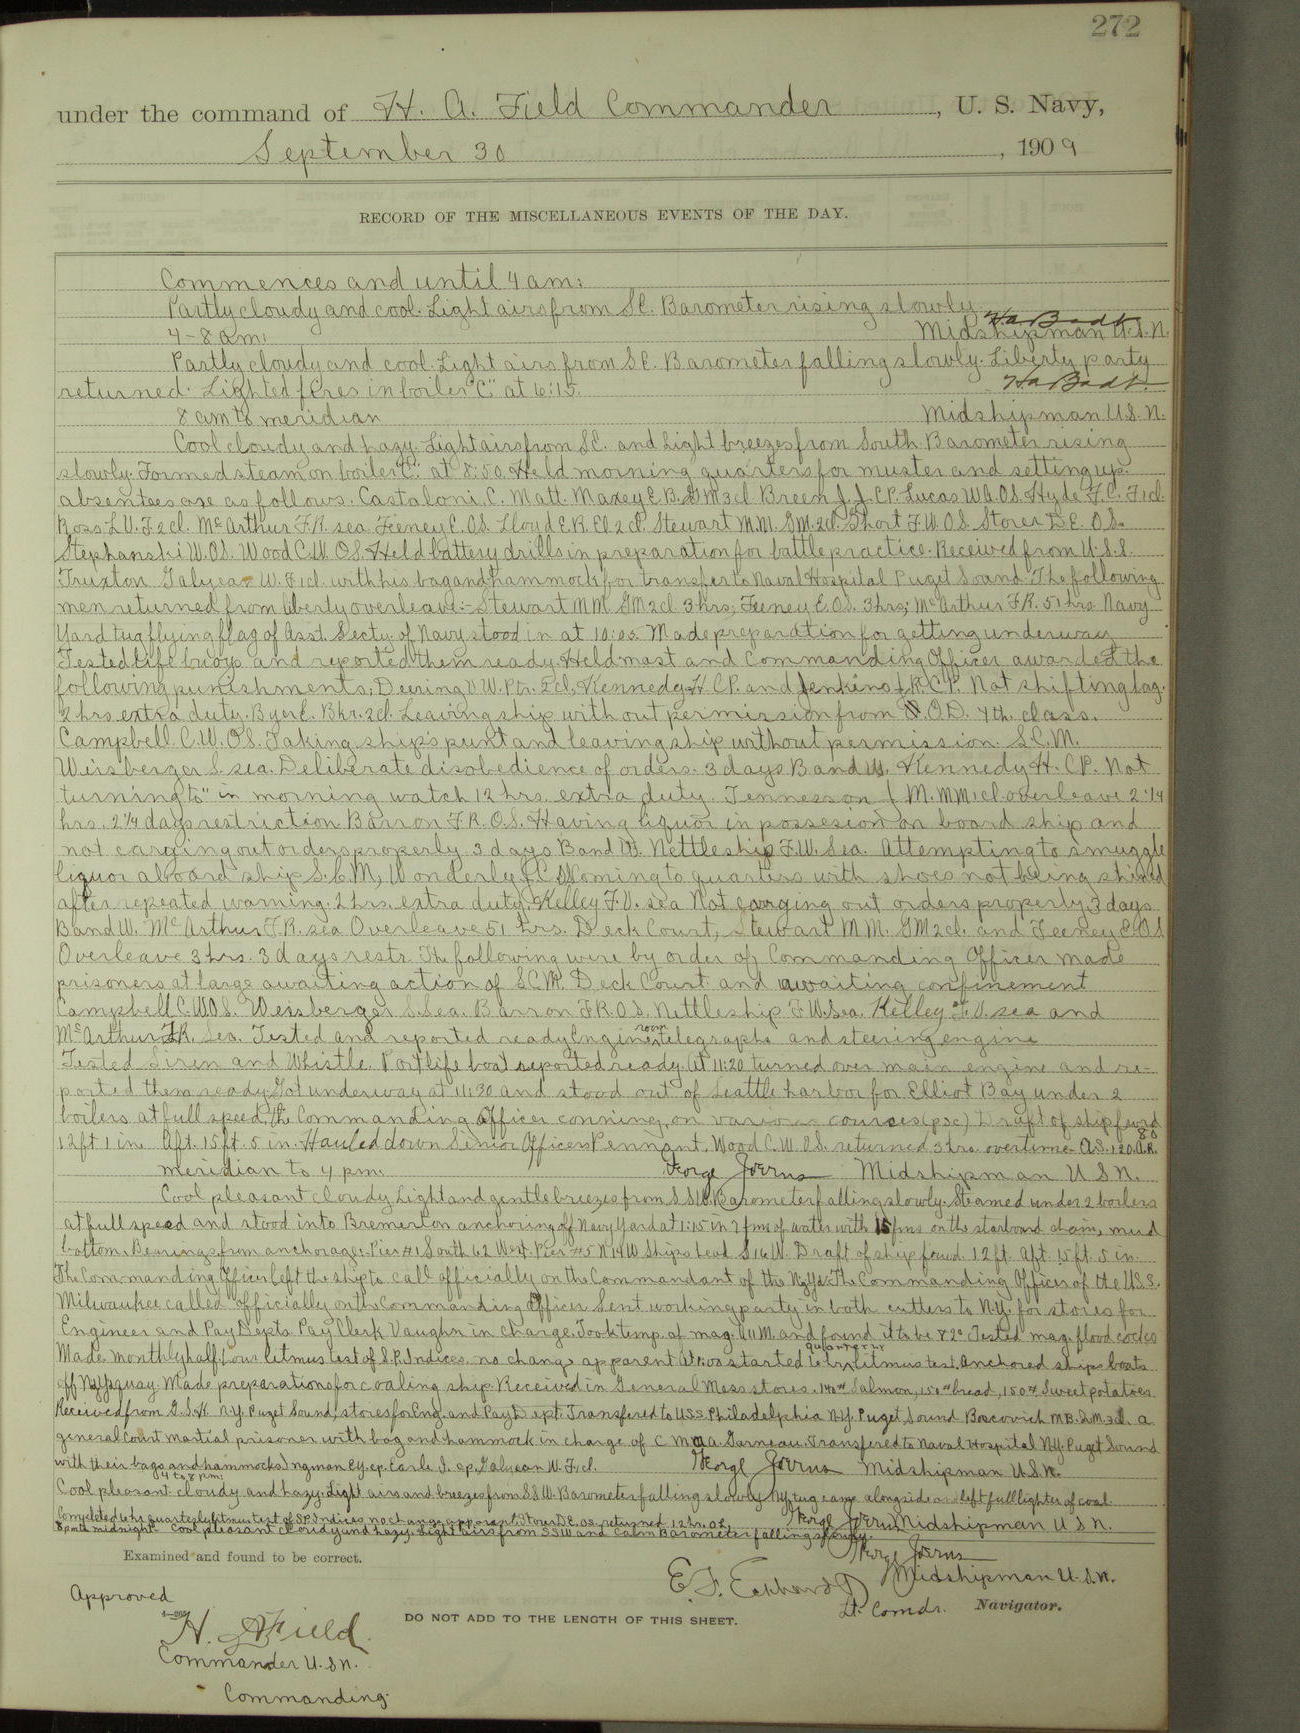 272
under the command of H. A. Field Commander, U. S. Navy,
September 30, 1909
RECORD OF THE MISCELLANEOUS EVENTS OF THE DAY.
Commences and until 4 am:
Partly cloudy and cool. Light airs from SE. Barometer rising slowly.
Ha Badt
4-8 am: Midshipman U.S.N.
Partly cloudy and cool. Light airs from SE. Barometer falling slowly. Liberty party
returned. Lighted fires in boiler "C" at 6:15. Ha Badt.
8 am to meridian Midshipman U.S.N.
Cool cloudy and hazy. Light airs from SE. and light breezes from South. Barometer rising
slowly. Formed steam on boiler "C" at 8:50. Held morning quarters for muster and setting up.
absentees are as follows. Castaloni, C. Matt. Maxey E.B. GM3cl Breen J.J. C.P. Lucas W.A. O.S. Hyde F.C. F1cl.
Ross L.V. F2cl. McArthur F.R. sea. Feeney E. O.S. Lloyd E.R. El2cl. Stewart M.M. GM.2cl. Short F.W. O.S. Storer D.E. O.S.
Stephanski W. O.S. Wood C.W. O.S. Held battery drills in preparation for battle practice. Received from U.S.S.
Truxton Galyean W. F1cl. with his bag and hammock for transfer to Naval Hospital Puget Sound. The following
men returned from liberty overleave:- Stewart M.M. GM2cl 3 hrs; Feeney E. O.S. 3 hrs; McArthur F.R. 51 hrs. Navy
Yard tug flying flag of Asst. Secty. of Navy stood in at 10:05. Made preparation for getting underway
Tested life buoys and reported them ready. Held mast and Commanding Officer awarded the
following punishments; Deering V.W. Ptr. 2cl, Kennedy H. C.P. and Jenkins J.R. C.P. Not shifting fag.
2 hrs extra duty. Byer C. Bkr. 2cl. Leaving ship without permission from O.D. 4th class.
Campbell C.W. O.S. Taking ship's punt and leaving ship without permission. S.C.M.
Weisberger S. sea. Deliberate disobedience of orders. 3 days B and W. Kennedy H. C.P. Not
"turning to" in morning watch 12 hrs. extra duty. Tennesson J.M. MM1cl. overleave 2 1/4
hrs. 2 1/4 days restriction Barron F.R. O.S. Having liquor in possesion on board ship and
not carying out orders properly 3 days B and W. Nettleship F.W. Sea. Attempting to smuggle
liquor aboard ship S.C.M, Wonderley F.C. Coming to quarters with shoes not being shined
after repeated warning. 2 hrs. extra duty. Kelley F.V. sea Not carying out orders properly 3 days
B and W. McArthur F.R. sea Overleave 51 hrs. Deck Court, Stewart M.M. GM2cl. and Feeney E. O.S
Overleave 3 hrs. 3 days restr. The following were by order of Commanding Officer made
prisoners at large awaiting action of S.C.M. Deck Court and awaiting confinement
Campbell C.W. O.S. Weisberger S. Sea. Barron F.R. O.S. Nettleship F.W. Sea. Kelley F.V. sea and
McArthur F.R. Sea. Tested and reported ready Engine room telegraphs and steering engine
Tested Siren and Whistle. Port life boat reported ready. At 11:20 turned over main engine and re-
ported them ready. Got underway at 11:30 and stood out of Seattle harbor for Elliot Bay under 2
boilers at full speed, the Commanding Officer conning, on various courses (psc) Draft of ship fwrd
12 ft 1 in. Aft. 15 ft. 5 in. Hauled down Senior Officers Pennant. Wood C.W. O.S. returned 3 hrs. overtime.
meridian to 4 pm: George Joerns Midshipman U S N.
Cool pleasant cloudy. Light and gentle breezes from SSW. Barometer falling slowly. Steamed under 2 boilers
at full speed and stood into Bremerton anchoring off Navy Yard at 1:15 in 7 fms of water with 15 fms on the starboard chain, mud
bottom. Bearings from anchorage: Pier #1 South 62 West. Pier #5 N 19 W Ships head S 16 W. Draft of ship forwd. 12 ft. Aft. 15 ft. 5 in.
The Commanding Officer left the ship to call officially on the Commandant of the NyYd. The Commanding Officer of the U.S.S.
Milwaukee called officially on the Commanding Officer Sent working party in both cutters to N.Y. for stores for
Engineer and Pay Depts. Pay Clerk Vaughn in charge. Took temp. of mag. 11 M. and found it to be 82° Tested mag. flood cocks
Made monthly half hour litmus test of S.P. Indices. no change apparent At 1:00 started 6 hr. quarterly litmus test. Anchored ships boats
off NyYd quay. Made preparations for coaling ship Received in General Mess stores. 140# Salmon, 150# bread, 150# Sweet potatoes
Received from G.S.K. N.Y. Puget Sound, stores for Eng. and Pay Dept. Transfered to U.S.S. Philadelphia N.Y. Puget Sound Boscovich M.B. a
general Court martial prisoner with bag and hammock in charge of C M a a. Garneau. Transfered to Naval Hospital N.Y. Puget Sound
with their bags and hammocks Ingman E.y. cp. Earle I. cp. Galyean W. F1cl. George Joerns Midshipman U.S.N.
4 to 8 pm:
Cool pleasant cloudy and hazy. Light airs and breezes from SSW. Barometer falling slowly NY. tug came alongside and left full lighter of coal
Completed 6 hr. quarterly litmus test of S.P. Indices no change apparent. Storer D.E. O.S. returned 12 hr. O.L. George Joerns Midshipman U S N.
8 pm to midnight. Cool pleasant cloudy and hazy. Light airs from SSW and calm Barometer falling slowly.
George Joerns
Midshipman U.S.N.
Examined and found to be correct.
Approved
H. A. Field
Commander U.S.N.
Commanding.
DO NOT ADD TO THE LENGTH OF THIS SHEET.
Lt. Comdr. Navigator.